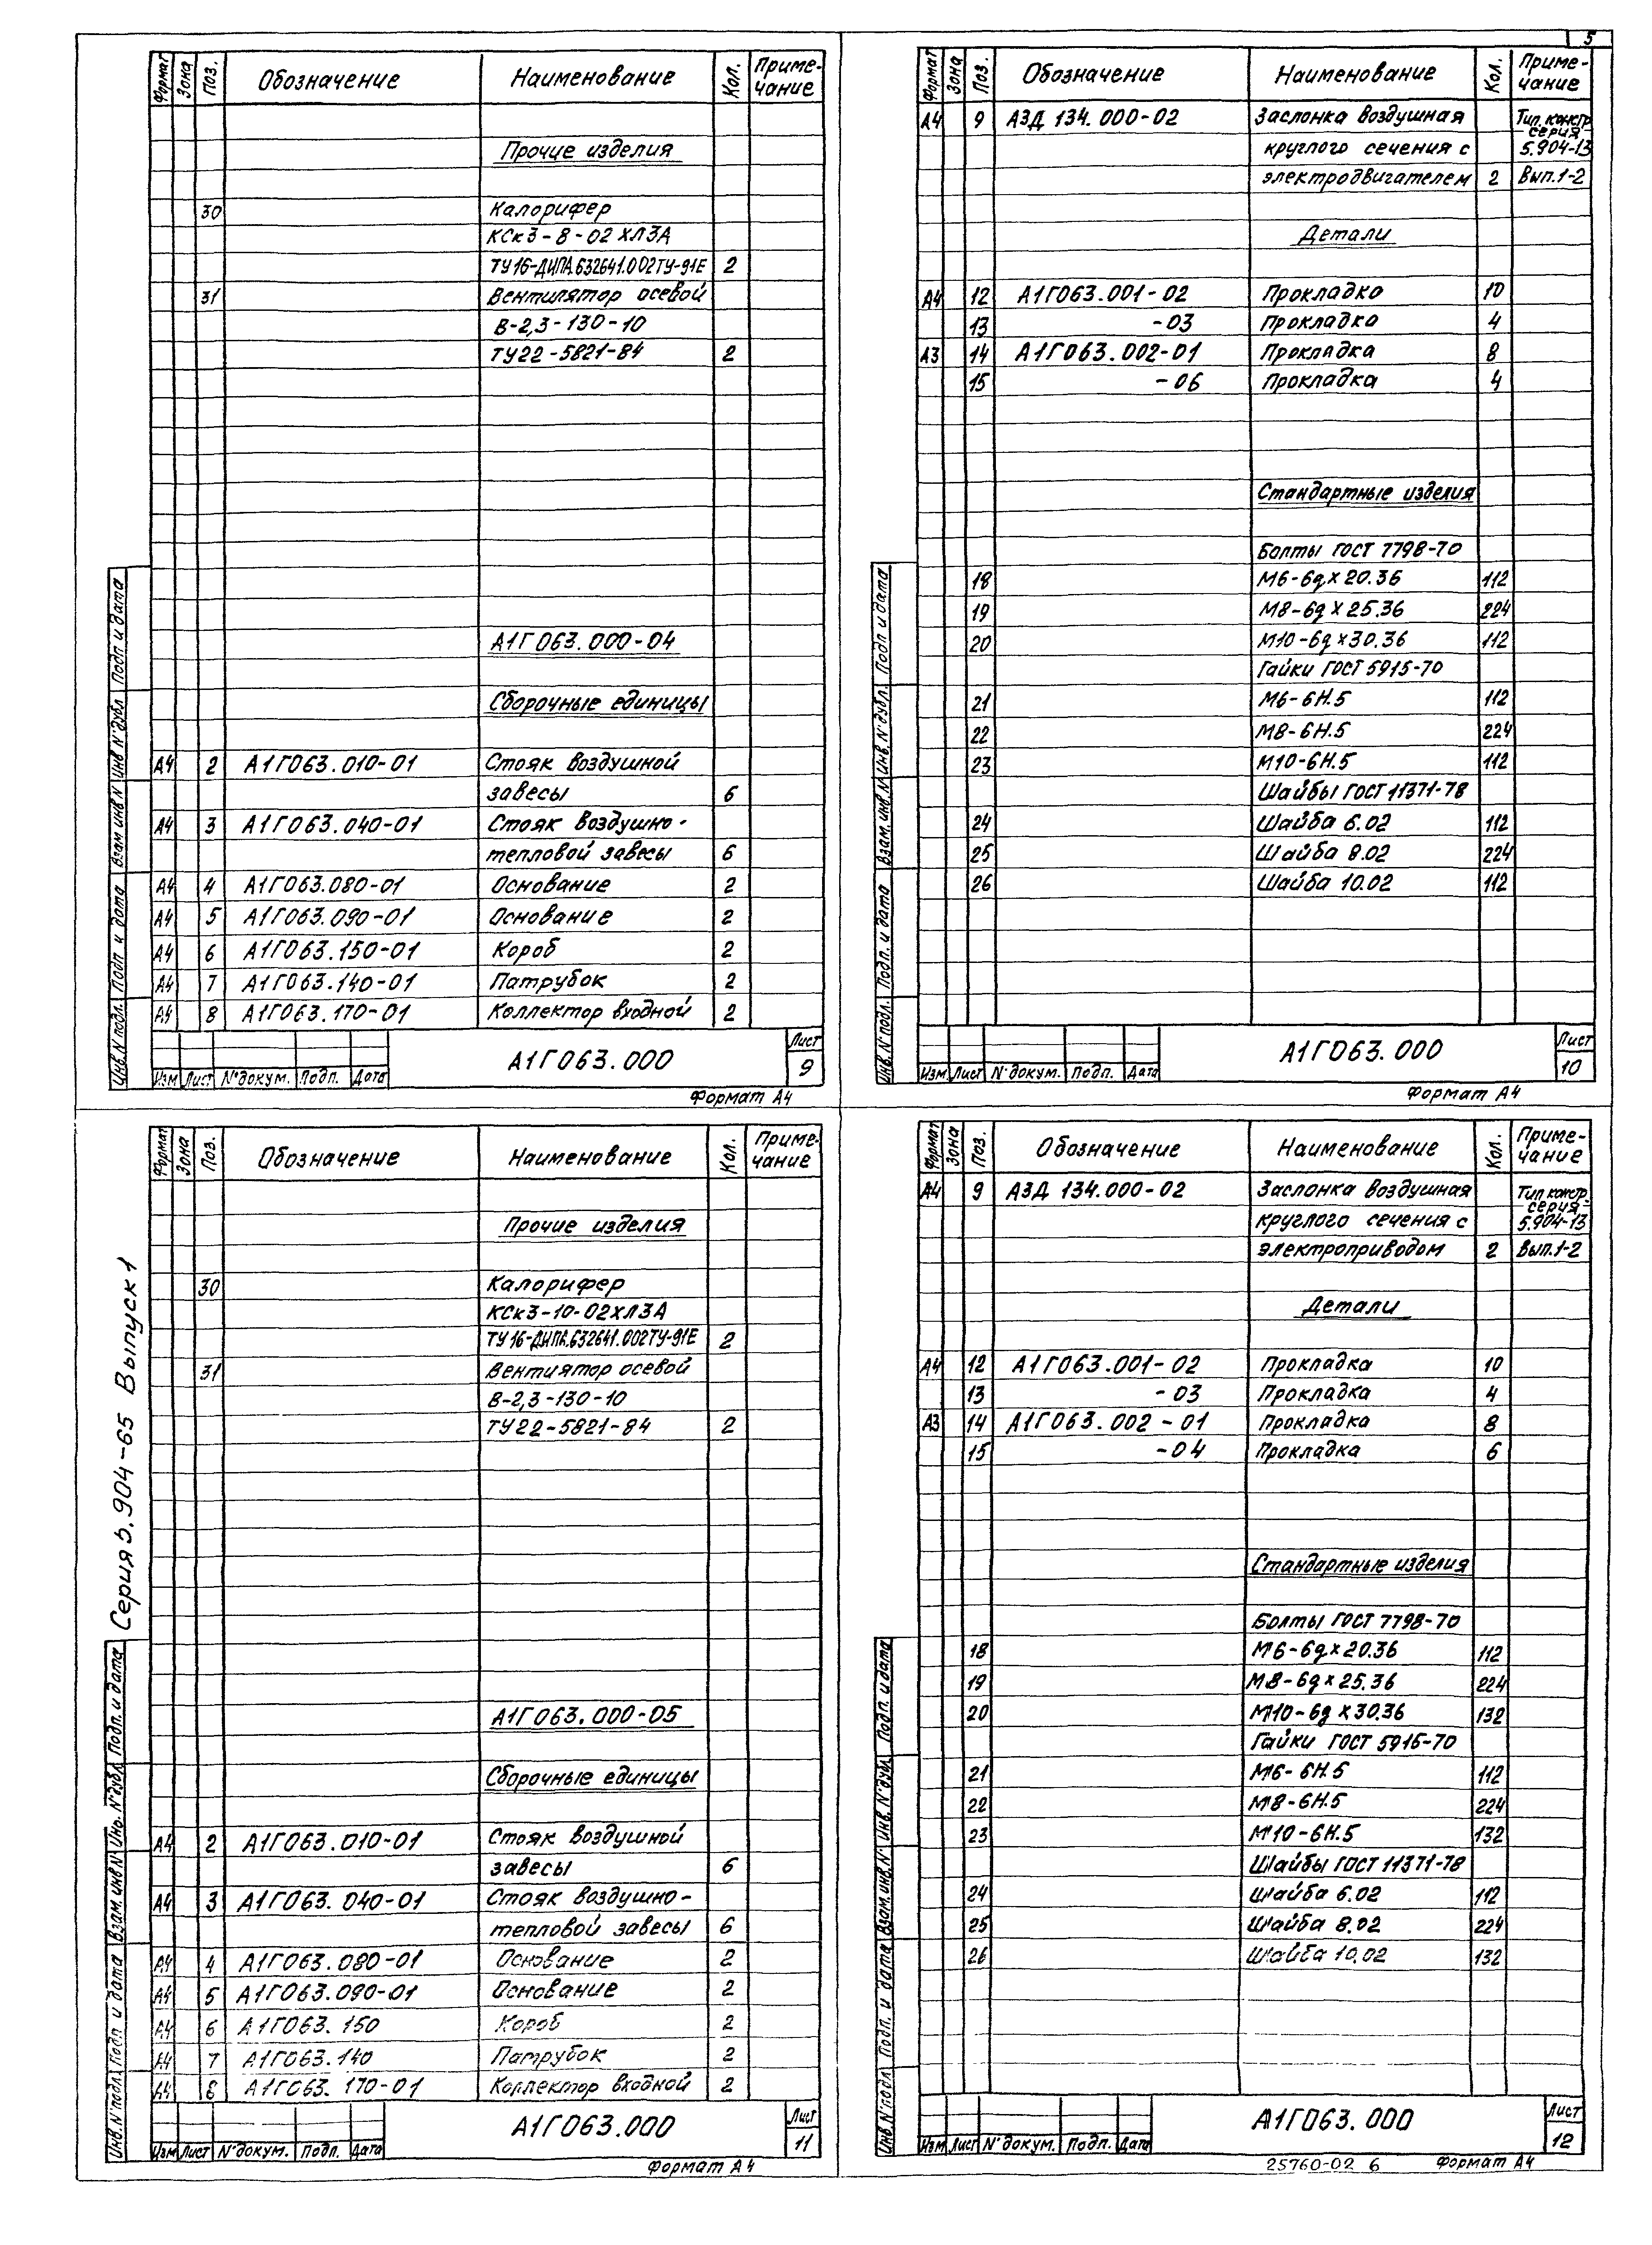 5
Формат Зона Поз. Обозначение Наименование Кол. Приме-
чание
Прочие изделия
30 Калорифер
КСк3-8-02ХЛ3А
ТУ16-ДИПА.632641.002ТУ-91Е 2
31 Вентилятор осевой
В-2,3-130-10
ТУ22-5821-84 2
А1Г063.000-04
Сборочные единицы
А4 2 А1Г063.010-01 Стояк воздушной
завесы 6
А4 3 А1Г063.040-01 Стояк воздушно-
тепловой завесы 6
А4 4 А1Г063.080-01 Основание 2
А4 5 А1Г063.090-01 Основание 2
А4 6 А1Г063.150-01 Короб 2
А4 7 А1Г063.140-01 Патрубок 2
А4 8 А1Г063.170-01 Коллектор входной 2
Инв.N подл. Подп. и дата Взам инв N Инв N дубл Подп и дата
Изм Лист N°докум. Подп. Дата
А1Г063.000
Лист
9
Формат А4
Формат Зона Поз. Обозначение Наименование Кол. Приме-
чание
А4 9 АЗД 134.000-02 Заслонка воздушная Тип. констр.
серия
круглого сечения с 5.904-13
электродвигателем 2 Вып.1-2
Детали
А4 12 А1Г063.001-02 Прокладка 10
13 -03 Прокладка 4
А3 14 А1Г063.002-01 Прокладка 8
15 -06 Прокладка 4
Стандартные изделия
Болты ГОСТ 7798-70
18 М6-6gх20.36 112
19 М8-6gх25.36 224
20 М10-6gх30.36 112
Гайки ГОСТ 5915-70
21 М6-6Н.5 112
22 М8-6Н.5 224
23 М10-6Н.5 112
Шайбы ГОСТ 11371-78
24 Шайба 6.02 112
25 Шайба 8.02 224
26 Шайба 10.02 112
Инв.N°подл. Подп. и дата Взам. инв.N Инв.N°дубл. Подп и дата
Изм Лист N°докум. Подп. Дата
А1Г063.000
Лист
10
Формат А4
Серия 5.904-65 Выпуск 1
Формат Зона Поз. Обозначение Наименование Кол. Приме-
чание
Прочие изделия
30 Калорифер
КСк3-10-02ХЛ3А
ТУ16-ДИПА.632641.002ТУ-91Е 2
31 Вентиятор осевой
В-2,3-130-10
ТУ22-5821-84 2
А1Г063.000-05
Сборочные единицы
А4 2 А1Г063.010-01 Стояк воздушной
завесы 6
А4 3 А1Г063.040-01 Стояк воздушно-
тепловой завесы 6
А4 4 А1Г063.080-01 Основание 2
А4 5 А1Г063.090-01 Основание 2
А4 6 А1Г063.150 Короб 2
А4 7 А1Г063.140 Патрубок 2
А4 8 А1Г063.170-01 Коллектор входной 2
Инв.N подл Подп и дата Взам.инв N° Инв.N°дубл Подп. и дата
Изм Лист N°докум. Подп. Дата
А1Г063.000
Лист
11
Формат А4
Формат Зона Поз. Обозначение Наименование Кол. Приме-
чание
А4 9 АЗД 134.000-02 Заслонка воздушная Тип констр.
серия
круглого сечения с 5.904-13
электроприводом 2 Вып.1-2
Детали
А4 12 А1Г063.001-02 Прокладка 10
13 -03 Прокладка 4
А3 14 А1Г063.002-01 Прокладка 8
15 -04 Прокладка 6
Стандартные изделия
Болты ГОСТ 7798-70
18 М6-6gх20.36 112
19 М8-6gх25.36 224
20 М10-6gх30.36 132
Гайки ГОСТ 5915-70
21 М6-6Н.5 112
22 М8-6Н.5 224
23 М10-6Н.5 132
Шайбы ГОСТ 11371-78
24 Шайба 6.02 112
25 Шайба 8.02 224
26 Шайба 10.02 132
Инв.N°подл Подп. и дата Взам.инв.N° Инв.N°дубл Подп. и дата
Изм Лист N°докум. Подп. Дата
А1Г063.000
Лист
12
25760-02 6 Формат А4